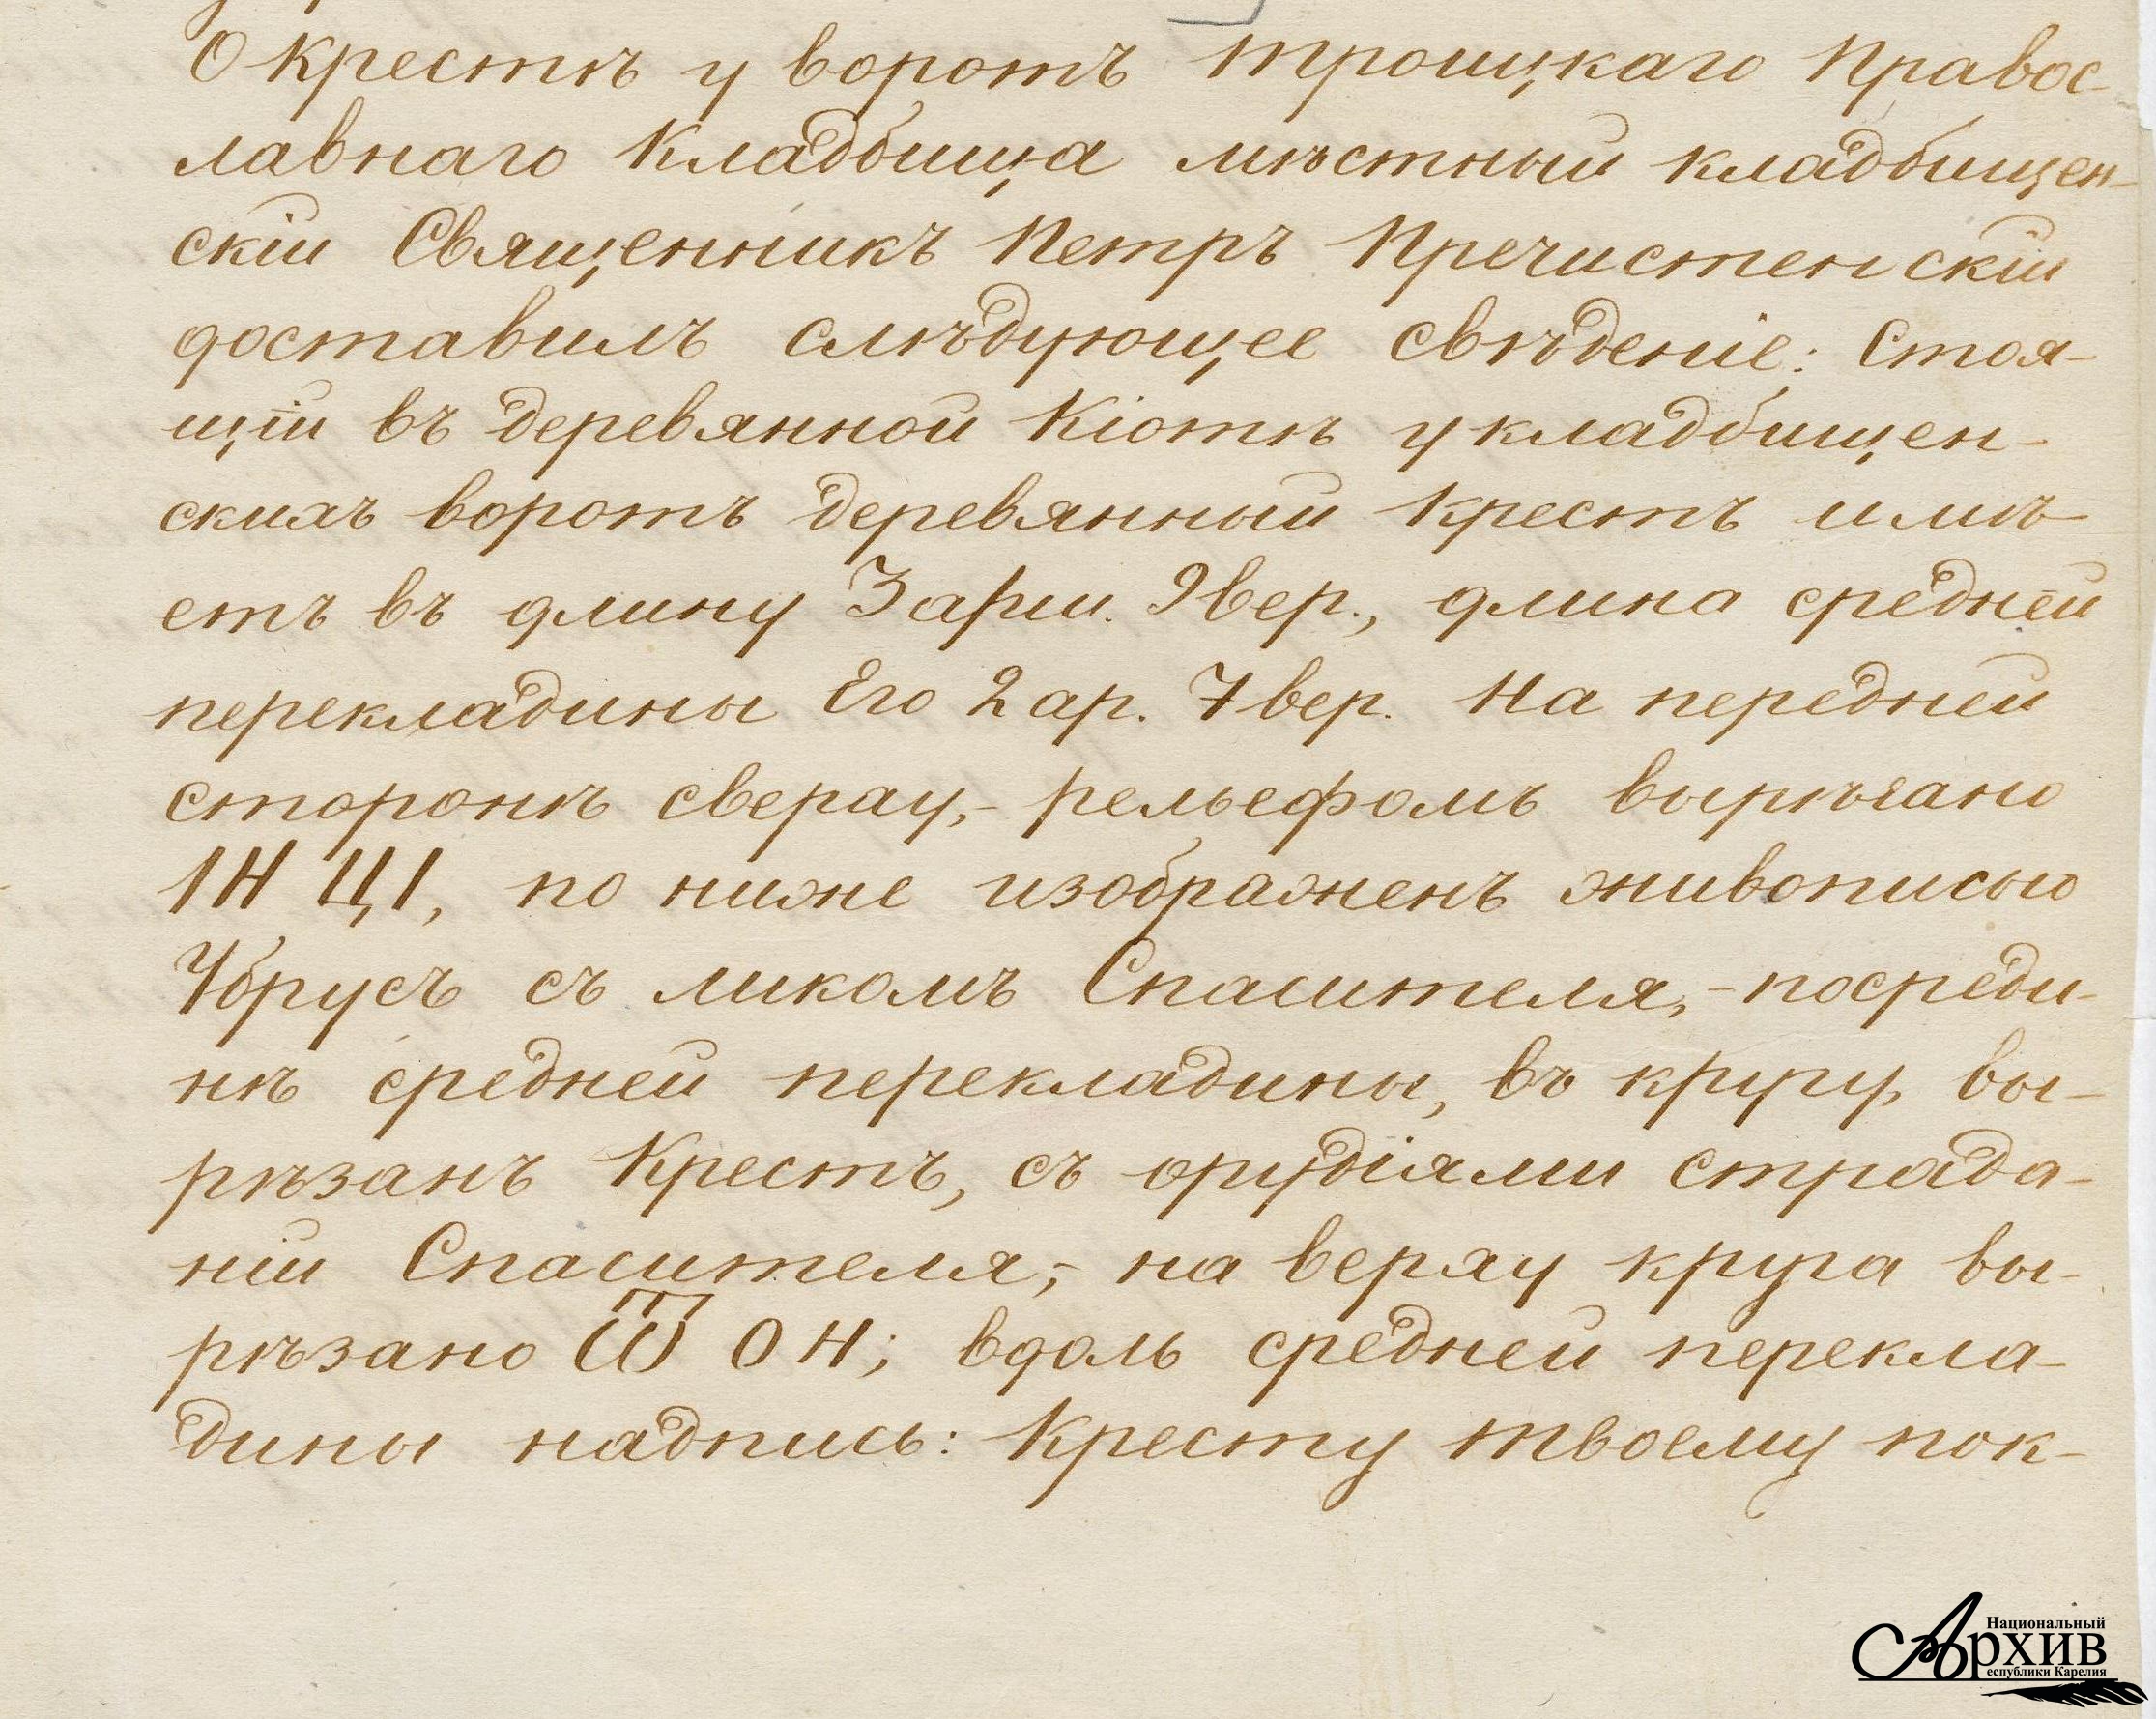 О крестѣ у воротъ Троицкаго Правос-
лавнаго Кладбища мѣстный кладбищен-
скій Священникъ Петръ Пречистенскій
доставилъ слѣдующее свѣденіе: Стоя-
щій въ деревянной Кіотѣ у кладбищен-
скихъ воротъ деревянный крестъ имѣ-
етъ въ длину 3 арш. 9 вер., длина средней
перекладины Его 2 ар. 7 вер. На передней
сторонѣ сверху,- рельефомъ вырѣзано
ІН ЦІ, по ниже изображенъ живописью
Убрусъ съ ликомъ Спасителя,- посреди-
нѣ средней перекладины, въ кругу, вы-
рѣзанъ Крестъ, съ орудіями страда-
ній Спасителя;- на верху круга вы-
рѣзано Ѿ О Н; вдоль средней перекла-
дины надпись: Кресту твоему пок-
Национальный
Архив
Республики Карелия